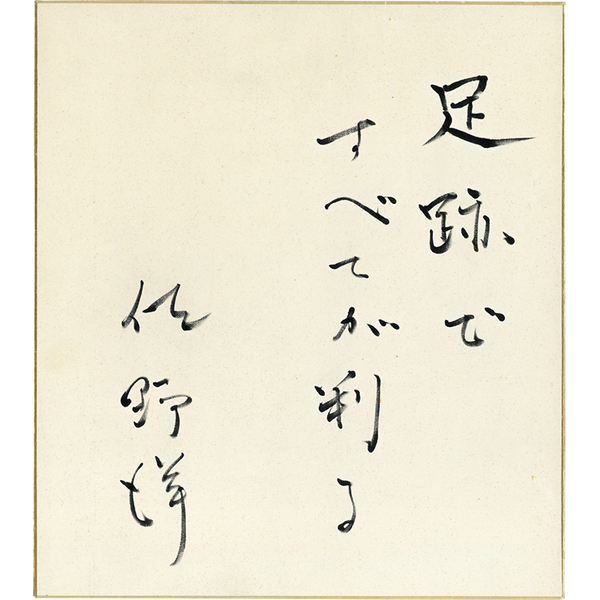 足跡で
すべてが判る
佐野洋